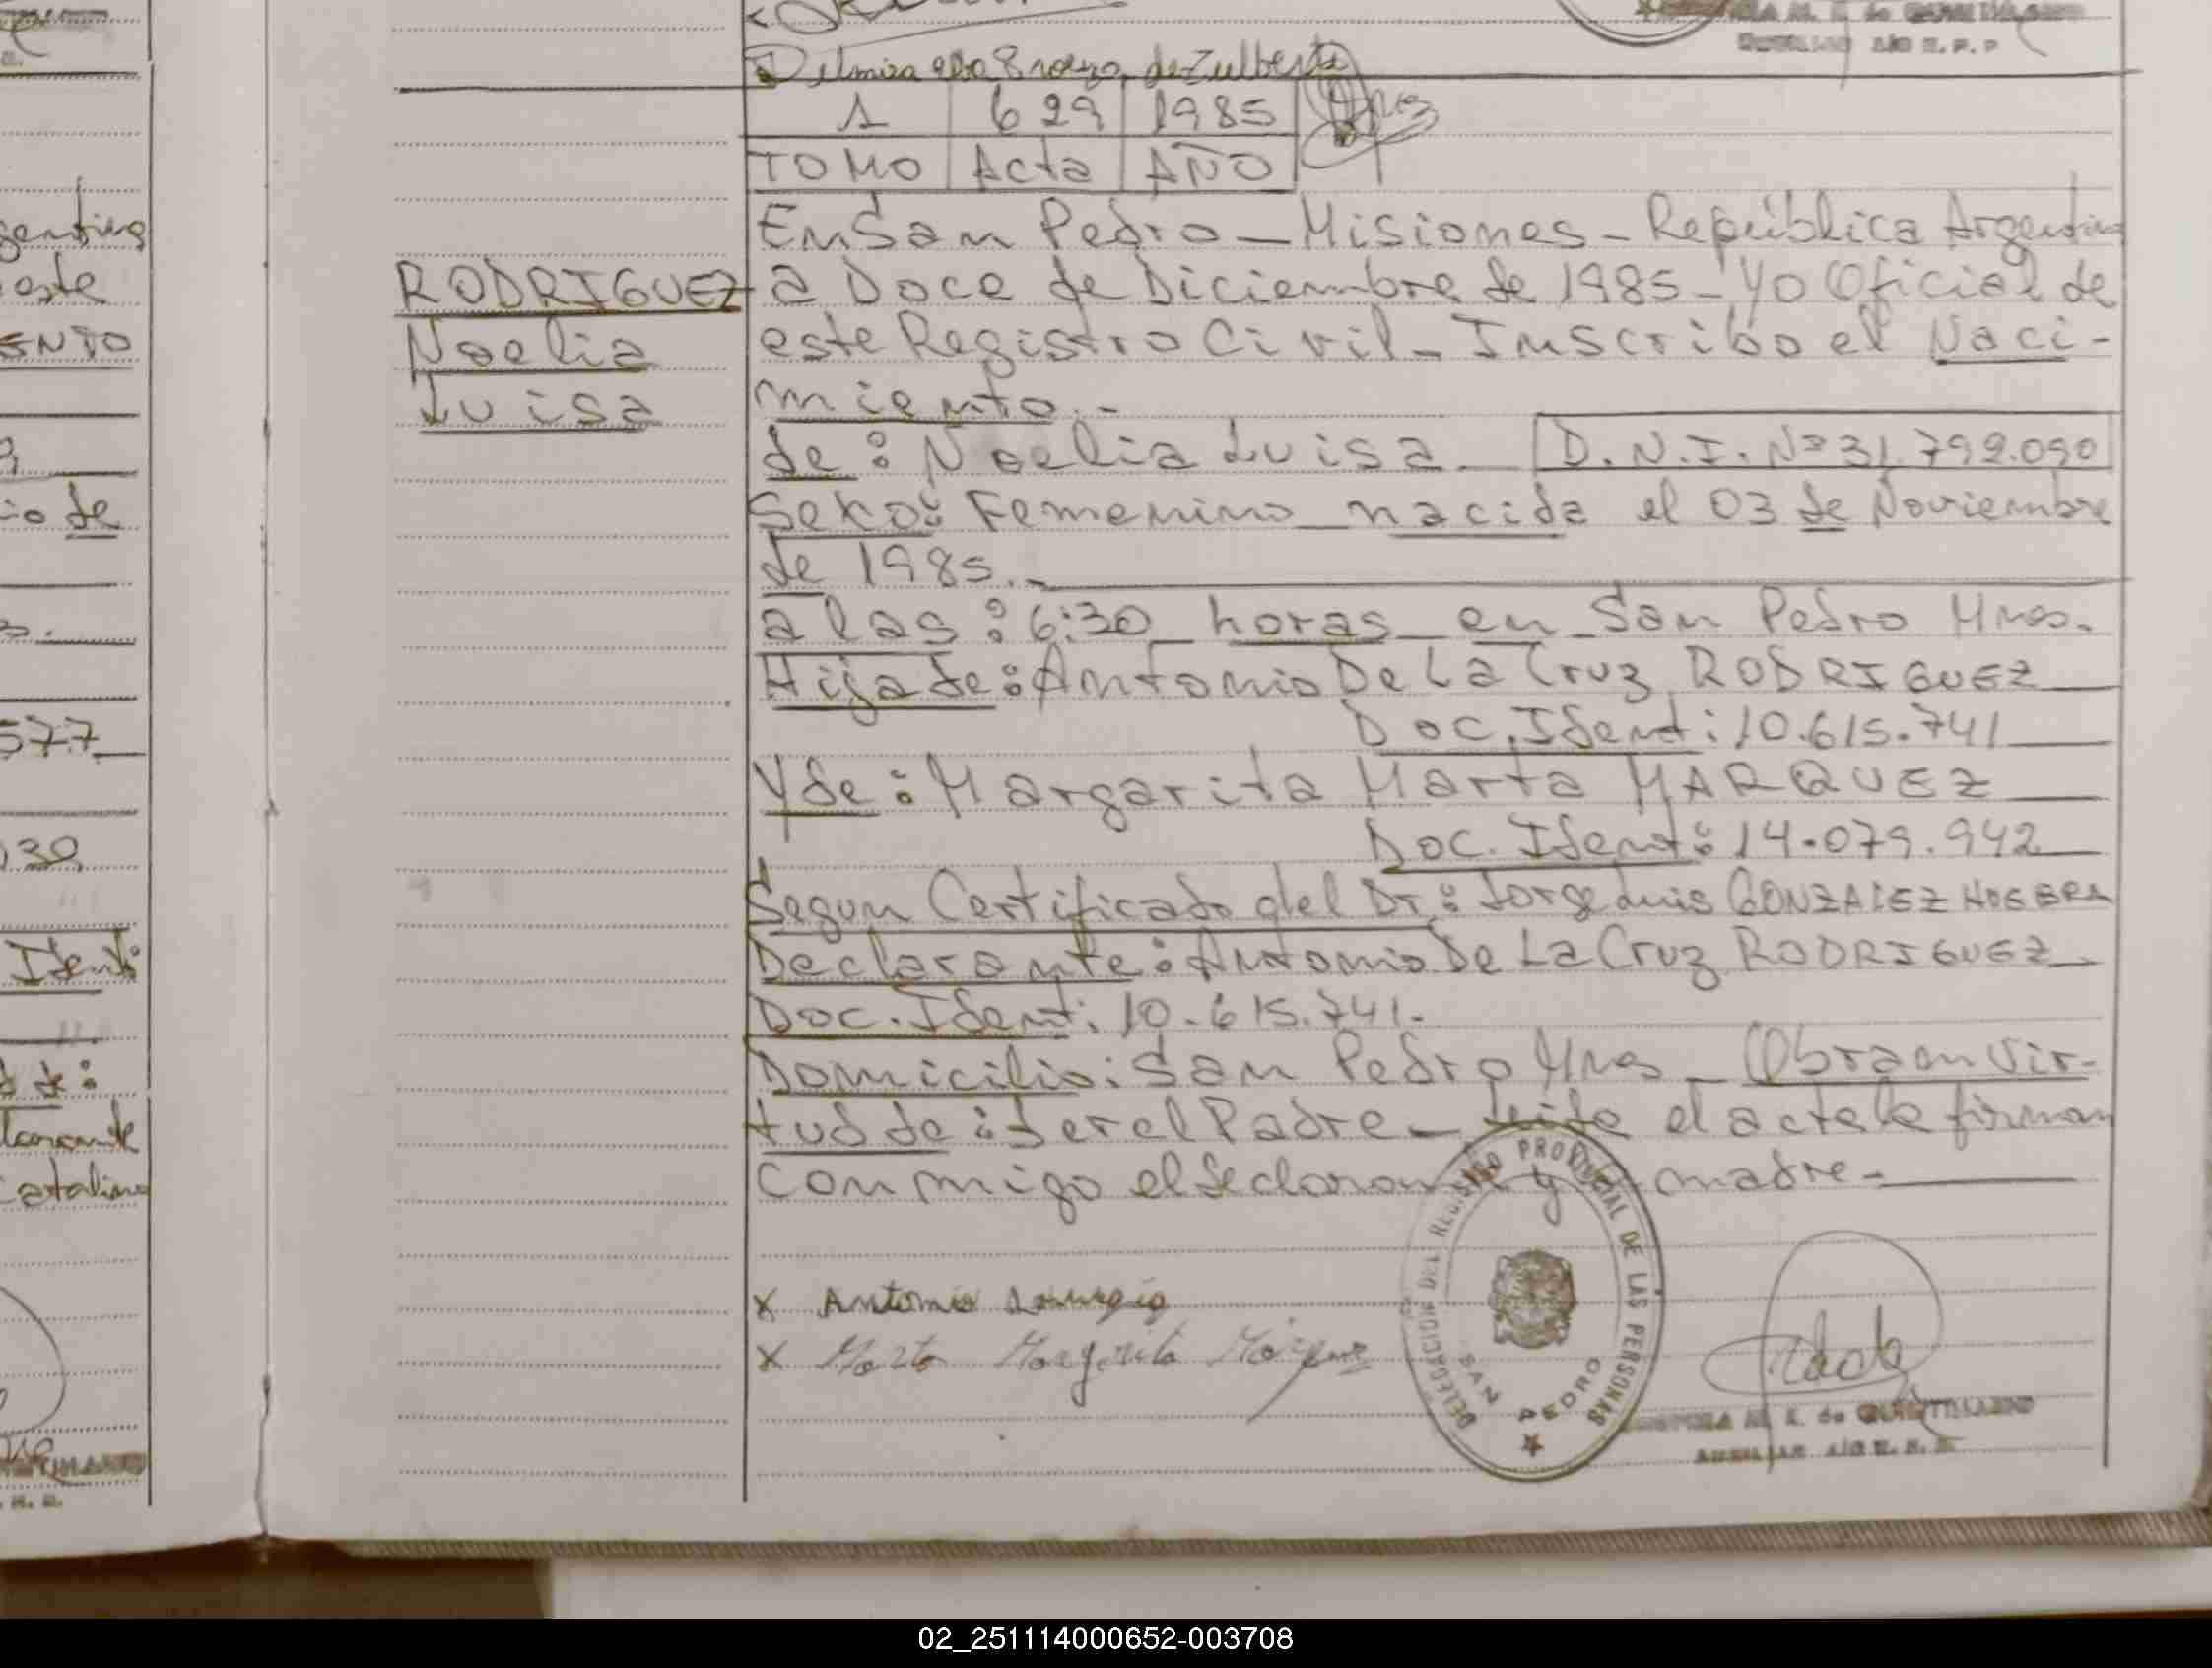 de Zulberti
1 629 1985
TOMO Acta AÑO
En San Pedro - Misiones - República Argentina
RODRIGUEZ
Noelia
Luisa
a Doce de Diciembre de 1985 - Yo Oficial de
este Registro Civil - Inscribo el Naci-
miento.-
de: Noelia Luisa D.N.I. Nº 31.799.090
Sexo: Femenino nacida el 03 de Noviembre
de 1985.-
a las: 6:30 horas en San Pedro Mnes.
Hija de: Antonio De La Cruz RODRIGUEZ
Doc. Ident: 10.615.741
Y de: Margarita Marta MARQUEZ
Doc. Ident: 14.079.942
Segun Certificado del Dr.: Jorge Luis GONZALEZ
Declarante: Antonio De La Cruz RODRIGUEZ
Doc. Ident: 10.615.741.
Domicilio: San Pedro Mnes - Obra en vir-
tud de: Ser el Padre - leída el acta la firman
conmigo el declarante y madre.
x Antonio
x Marta Margarita Márquez
DELEGACION DEL REGISTRO PROVINCIAL DE LAS PERSONAS
SAN PEDRO
M. E. de QUINTILIANO
AUXILIAR A/C R. P. P.
gentina
este
ENTO
io de
577
030
Ident:
d de:
Catalino
02_251114000652-003708